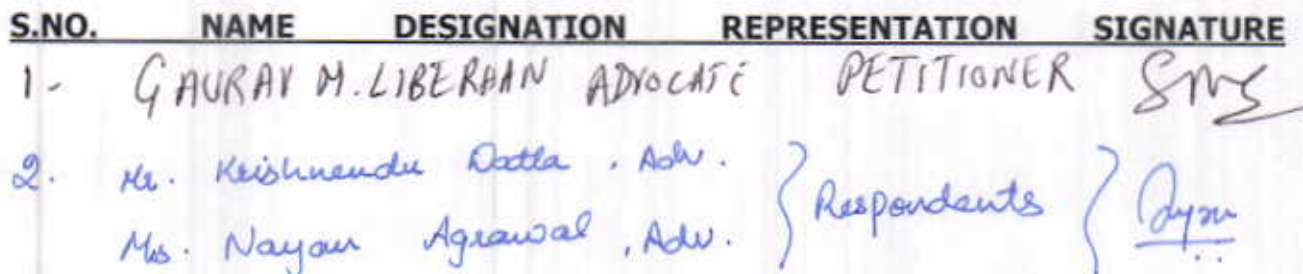 S.NO. NAME DESIGNATION REPRESENTATION SIGNATURE
1- GAURAV M. LIBERHAN ADVOCATE PETITIONER
2. Mr. Krishnendu Datta, Adv.
Ms. Nayan Agrawal, Adv. } Respondents }